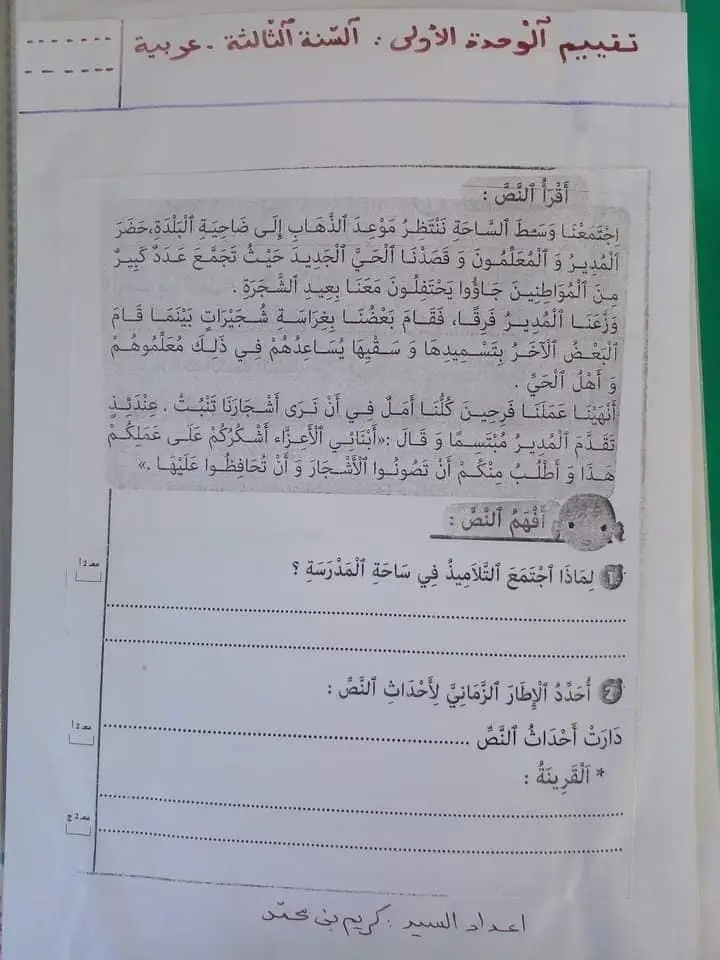 تقييم ٱلْوحدة الأولى : ٱلسّنة ٱلثّالثة - عربية
أَقْرَأُ ٱلنَّصَّ :
اِجْتَمَعْنَا وَسَطَ ٱلسَّاحَةِ نَنْتَظِرُ مَوْعِدَ ٱلذَّهَابِ إِلَى ضَاحِيَةِ ٱلْبَلْدَةِ،حَضَرَ
ٱلْمُدِيرُ وَ ٱلْمُعَلِّمُونَ وَ قَصَدْنَا ٱلْحَيَّ ٱلْجَدِيدَ حَيْثُ تَجَمَّعَ عَدَدٌ كَبِيرٌ
مِنَ ٱلْمُوَاطِنِينَ جَاؤُوا يَحْتَفِلُونَ مَعَنَا بِعِيدِ ٱلشَّجَرَةِ .
وَزَّعَنَا ٱلْمُدِيرُ فِرَقًا، فَقَامَ بَعْضُنَا بِغِرَاسَةِ شُجَيْرَاتٍ بَيْنَمَا قَامَ
ٱلْبَعْضُ ٱلْآخَرُ بِتَسْمِيدِهَا وَ سَقْيِهَا يُسَاعِدُهُمْ فِي ذَلِكَ مُعَلِّمُوهُمْ
وَ أَهْلُ ٱلْحَيِّ .
أَنْهَيْنَا عَمَلَنَا فَرِحِينَ كُلُّنَا أَمَلٌ فِي أَنْ نَرَى أَشْجَارَنَا تَنْبُتُ . عِنْدَئِذٍ
تَقَدَّمَ ٱلْمُدِيرُ مُبْتَسِمًا وَ قَالَ :«أَبْنَائِي ٱلْأَعِزَّاء أَشْكُرُكُمْ عَلَى عَمَلِكُمْ
هَذَا وَ أَطْلُبُ مِنْكُمْ أَنْ تَصُونُوا ٱلْأَشْجَارَ وَ أَنْ تُحَافِظُوا عَلَيْهَا .»
أَفْهَمُ ٱلنَّصَّ :
1 لِمَاذَا ٱجْتَمَعَ ٱلتَّلَامِيذُ فِي سَاحَةِ ٱلْمَدْرَسَةِ ؟
مع 1د
2 أُحَدِّدُ ٱلْإِطَارَ ٱلزَّمَانِيَّ لِأَحْدَاثِ ٱلنَّصِّ :
دَارَتْ أَحْدَاثُ ٱلنَّصِّ ........................
مع 2أ
* ٱلْقَرِينَةُ :
مع 2ج
اعداد السيد : كريم بن محمّد